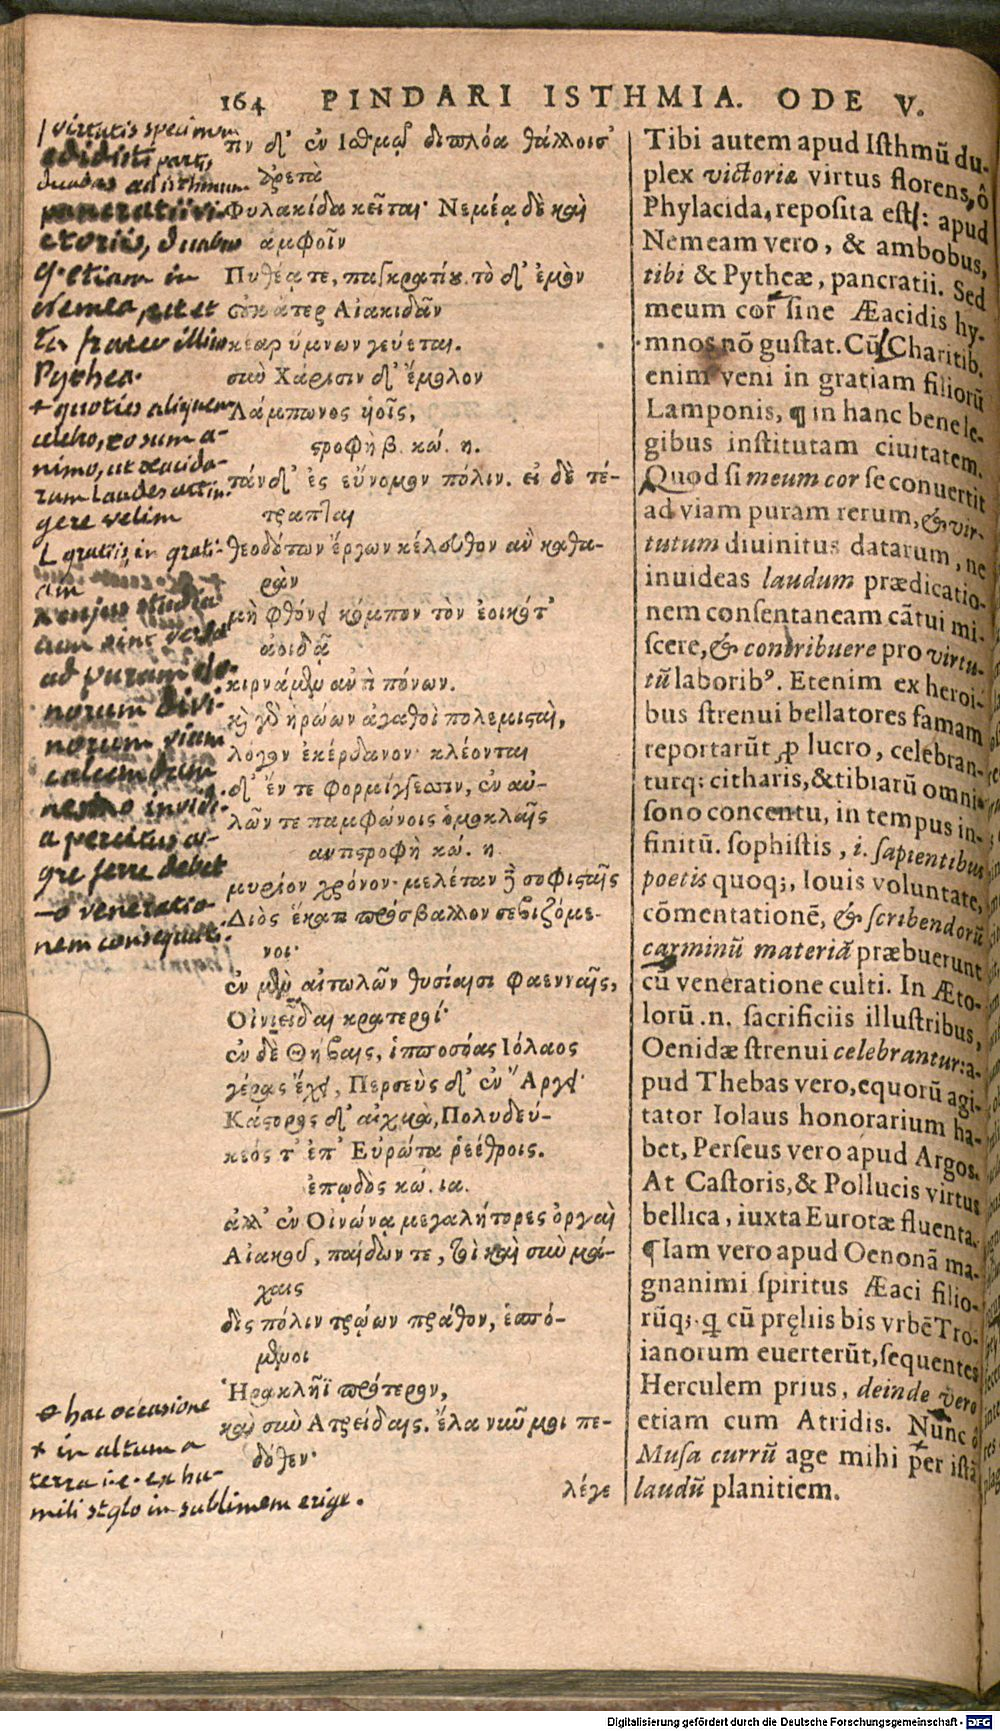 164 PINDARI ISTHMIA. ODE V.
virtutis specimen
edidisti parti,
duabus ad isthmum
pancratii vi-
ctoriis, duabus
q. etiam in
Nemea, ut et
tu frater illius
Pythea.
+ quoties aliquem
celebro, eo sum a-
nimo, ut Æacida-
rum laudes attin-
gere velim
L gratiis, in grati-
am
cujus studia
cum sint versa
ad puram do-
norum divi-
norum viam
calcandam
invidi-
a percitus æ-
gre ferre debet
–o veneratio-
nem consequuti.
hac occasione
+ in altum a
terra i.e. ex hu-
mili stylo in sublimem erige.
τὶν δ' ἐν Ισθμῷ διπλόα θάλλοισ'
ἀρετὰ
Φυλακίδα κεῖται· Νεμέᾳ δὲ καὶ
ἀμφοῖν
Πυθέᾳ τε, παγκρατίου. τὸ δ' ἐμὸν
οὐκ ἄτερ Αἰακιδᾶν
κέαρ ὕμνων γεύεται.
σὺν Χάρισιν δ' ἔμολον
Λάμπωνος υἱοῖς,
στροφὴ β. κώ. η.
τάνδ' ἐς εὔνομον πόλιν. εἰ δὲ τέ-
τραπται
θεοδότων ἔργων κέλευθον ἀν καθα-
ρὰν
μὴ φθόνει κόμπον τὸν ἐοικότ'
ἀοιδᾷ
κιρνάμεν ἀντὶ πόνων.
καὶ γὰρ ἡρώων ἀγαθοὶ πολεμισταὶ,
λόγον ἐκέρδανον· κλέονται
δ' ἔν τε φορμίγγεσσιν, ἐν αὐ-
λῶν τε παμφώνοις ὁμοκλαῖς
αντιστροφὴ κώ. η.
μυρίον χρόνον· μελέταν δὲ σοφισταῖς
Διὸς ἕκατι πρόσβαλλον σεβιζόμε-
νοι·
ἐν μὲν αἰτωλῶν θυσίαισι φαενναῖς,
Οἰνεῖδαι κρατεροί·
ἐν δὲ Θήβαις, ἱπποσόας Ιόλαος
γέρας ἔχει, Περσεὺς δ' ἐν Ἄργει·
Κάστορος δ' αἰχμὰ, Πολυδεύ-
κεός τ' ἐπ' Εὐρώτα ῥεέθροις.
ἐπῳδὸς κώ. ια.
ἀλλ' ἐν Οἰνώνᾳ μεγαλήτορες ὀργαὶ
Αἰακοῦ, παίδων τε, τοὶ καὶ σὺν μά-
χαις
δὶς πόλιν τρώων πράθον, ἑσπό-
μενοι
Ἡρακλῆϊ πρότερον,
καὶ σὺν Ατρείδαις. ἔλα νῦν μοι πε-
δόθεν·
λέγε
Tibi autem apud Isthmũ du-
plex victoriæ virtus florens, ô
Phylacida, reposita est: apud
Nemeam vero, & ambobus,
tibi & Pytheæ, pancratii. Sed
meum cor sine Æacidis hy-
mnos nõ gustat. Cũ Charitib.
enim veni in gratiam filiorũ
Lamponis, ¶ in hanc bene le-
gibus institutam ciuitatem.
Quod si meum cor se conuertit
ad viam puram rerum, & vir-
tutum diuinitus datarum, ne
inuideas laudum prædicatio-
nem consentaneam cãtui mi-
scere, & contribuere pro virtu-
tũ laborib⁹. Etenim ex heroi-
bus strenui bellatores famam
reportarũt ꝓ lucro, celebran-
turq; citharis, & tibiarũ omni-
sono concentu, in tempus in-
finitũ. sophistis, i. sapientibus
poetis quoq;, Iouis voluntate,
cõmentationẽ, & scribendorũ
carminũ materiã præbuerunt
cũ veneratione culti. In Æto-
lorũ .n. sacrificiis illustribus,
Oenidæ strenui celebrantur: a-
pud Thebas vero, equorũ agi-
tator Iolaus honorarium ha-
bet, Perseus vero apud Argos.
At Castoris, & Pollucis virtus
bellica, iuxta Eurotæ fluenta.
¶ Iam vero apud Oenonã ma-
gnanimi spiritus Æaci filio-
rũq;. q cũ pręliis bis vrbẽ Tro-
ianorum euerterũt, sequentes
Herculem prius, deinde vero
etiam cum Atridis. Nunc ô
Musa currũ age mihi per istã
laudũ planitiem.
Digitalisierung gefördert durch die Deutsche Forschungsgemeinschaft - DFG